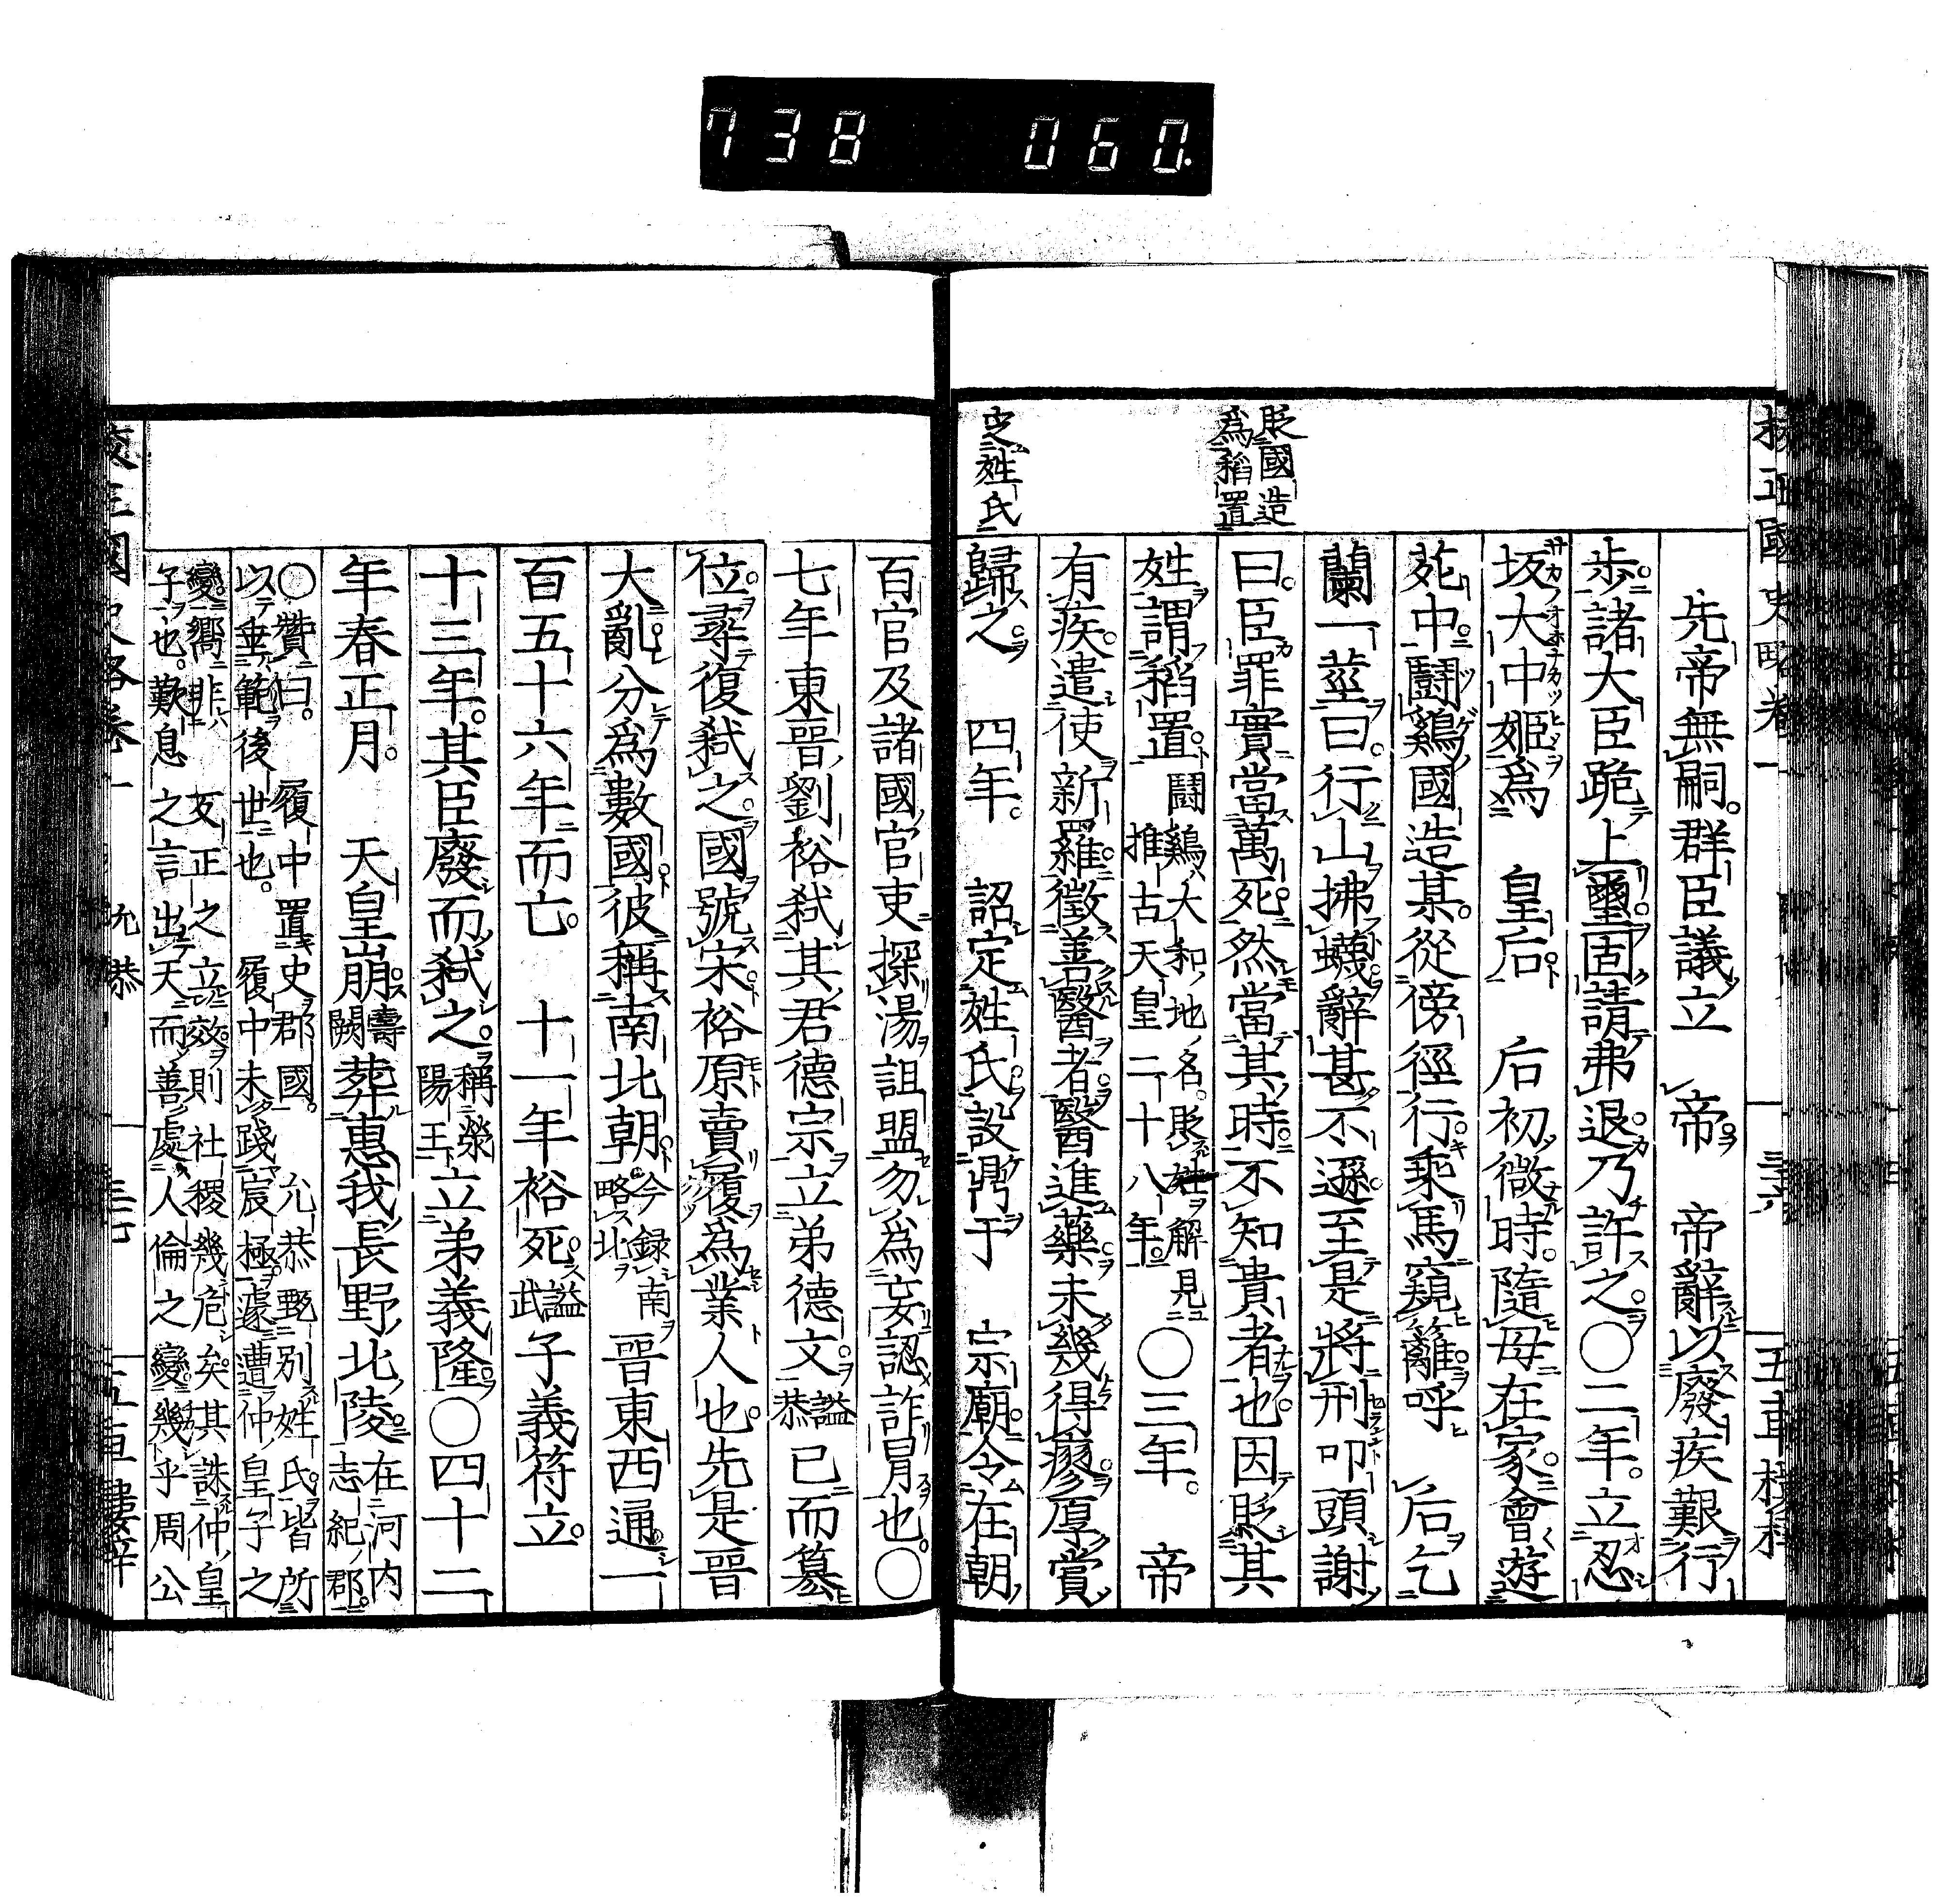 738 060
校正國史略卷一
五車樓梓
先帝無嗣。群臣議立　帝　帝辭以廢疾艱行
步。諸大臣跪上璽固請弗退。乃許之。○二年。立忍
坂大中姬為　皇后　后初微時。隨母在家。會遊
苑中。鬪鷄國造某。從傍徑行。乘馬窺籬呼　后乞
蘭一莖曰。行山拂蠛。辭甚不遜。至是將刑叩頭謝
貶國造
為稻置
曰。臣罪實當萬死。然當其時。不知貴者也。因貶其
姓謂稻置。鬪鷄、大和地名。貶姓解見
推古天皇二十八年。○三年。帝
有疾。遣使新羅。徵善醫者。醫進藥。未幾得瘳。厚賞
定姓氏
歸之。　四年。　詔定姓氏。設鼎于　宗廟。令在朝
百官及諸國官吏探湯詛盟勿為妄認詐冒也。○
七年東晉劉裕弒其君德宗立弟德文。諡恭已而篡
位。尋復弒之。國號宋。裕原賣履為業人也。先是晉
大亂。分為數國。彼稱南北朝。今錄南
略北晉東西通一
百五十六年而亡。　十一年裕死。諡武子義符立。
十三年。其臣廢而弒之。稱滎
陽王立弟義隆。○四十二
年春正月。　天皇崩。壽
闕葬惠我長野北陵。在河內
志紀郡。
○贊曰。履中置史郡國。允恭甄別姓氏。皆所
以垂範後世也。履中未踐宸極。遽遭仲皇子之
變。嚮非反正之立效。則社稷幾危矣。其誅仲皇
子也。歎息之言出天而善處人倫之變。幾乎周公
允恭